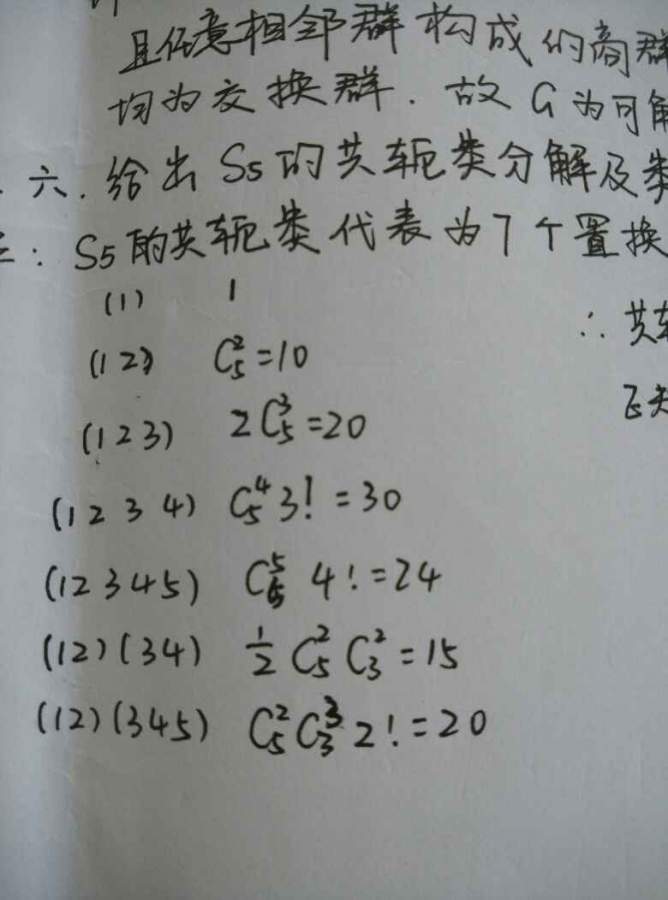 且任意相邻群构成的商群
均为交换群.故G为可解
六.给出S₅的共轭类分解及类
:S₅的共轭类代表为7个置换
(1) 1
∴共轭
(12) C₅²=10
(123) 2C₅³=20
(1234) C₅⁴3!=30
(12345) C₅⁵4!=24
(12)(34) ½C₅²C₃²=15
(12)(345) C₅²C₃³2!=20